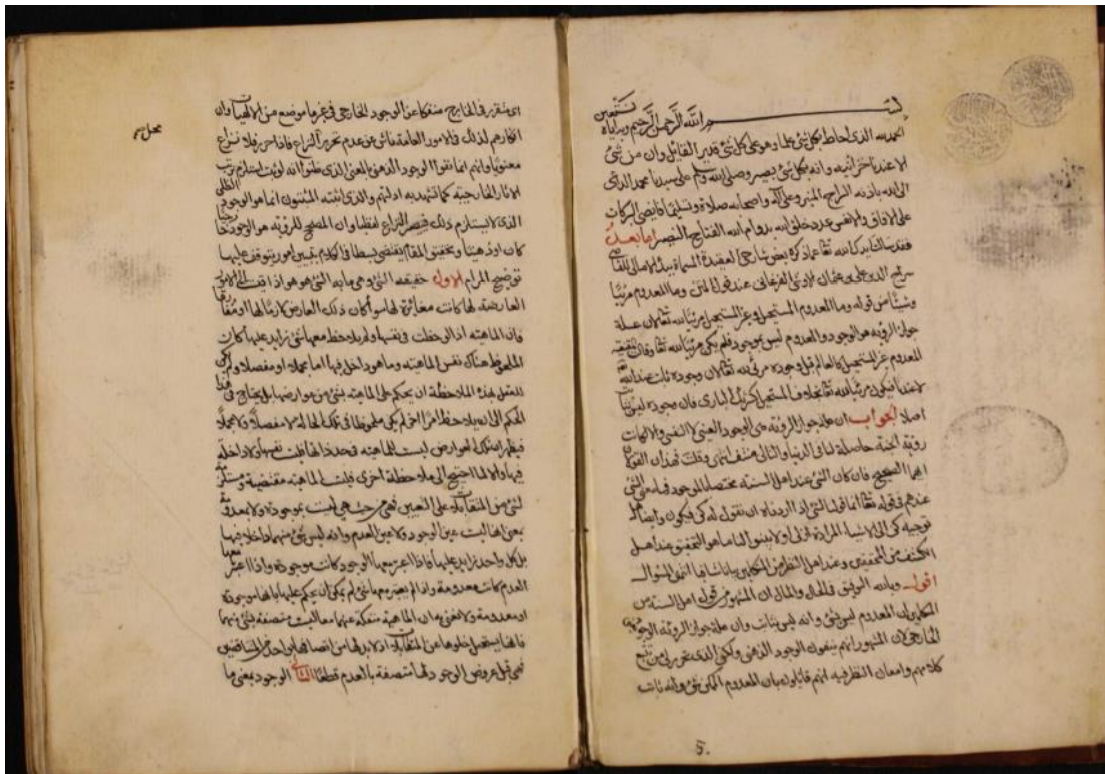 بسم الله الرحمن الرحيم وبه نستعين
الحمد لله الذي احاط بكل شئ علما وهو على كل شئ قدير القائل وان من شئ
الا عندنا خزائنه وانه بكل شئ بصير وصلى الله وسلم على سيدنا محمد الداعي
الى الله باذنه السراج المنير وعلى آله واصحابه صلاة وتسليما فائضي البركات
على الافاق والانفس عدد خلق الله بدوام الله الفتاح النصير اما بعد
فقد سالني ايدك الله تعا عما ذكره بعض شارحي العقيدة المسماة ببدء الامالي للقاضي
سراج الدين علي بن عثمان الاوشي الفرغاني عند قول المتن وما المعدوم مرئيا
وشيئا من قوله وما المعدوم المستحيل وغير المستحيل مرئيا لله تعا لان علة
جواز الرؤية هو الوجود والمعدوم ليس بموجود فلم يكن مرئيا لله تعا وقال
المعدوم غير المستحيل كالعالم قبل وجوده مرئي لله تعا لان وجوده ثابت عند الله
لا عندنا فيكون مرئيا لله تعا بخلاف المستحيل كشريك الباري فان وجوده ليس بثابت
اصلا الجواب ان علة جواز الرؤية هي الوجود العيني لا النفسي والا لكانت
رؤية الجنة حاصلة لنا في الدنيا والتالي منتف انتهى وقلت فهذان القولان
ايهما الصحيح فان كان الشئ عند اهل السنة مختصا بالموجود فما معنى الشئ
عندهم في قوله تعا انما قولنا لشئ اذا اردناه ان نقول له كن فيكون وايضا ما
توجيه كن الى الاشياء المرادة ازلي او لا بينوا لنا ما هو التحقيق عند اهل
الكشف من المحققين وعند اهل النظر من المتكلمين بيانا شافيا انتهى السؤال
اقول وبالله التوفيق في الحال والمآل ان المشهور من قول اهل السنة من
المتكلمين ان المعدوم ليس بشئ وانه ليس بثابت وان علة جواز الرؤية الوجود
الخارجي لان المشهور انهم ينفون الوجود الذهني ولكن الذي تحرر لي من تتبع
كلامهم وامعان النظر فيه انهم قائلون بان المعدوم الممكن شئ وانه ثابت
اي متقرر في الخارج منفكا عن الوجود الخارجي في غير ما موضع من الالهيات وان
انكارهم لذلك في الامور العامة ناشئ عن عدم تحرير النزاع فاذا حرر فلا نزاع
معنويا وانهم انما نفوا الوجود الذهني بالمعنى الذي ظنوا انه لو ثبت استلزم ترتب
الاثار الخارجية كما تشهد به ادلتهم والذي اثبته المثبتون انما هو الوجود الظلي
الذي لا يستلزم ذلك فيصير النزاع لفظيا وان المصحح للرؤية هو الوجود خارجيا
كان او ذهنيا وتحقيق المقام يقتضي بسطا في الكلام بتبيين امور يتوقف عليها
توضيح المرام الاول حقيقة الشئ وهي ما به الشئ هو هو اذا قيست الى الامور
العارضة لها كانت مغائرة لها سواء كان ذلك العارض لازما لها او مفارقا
فان الماهية اذا لوحظت في نفسها ولم يلاحظ معها شئ زايد عليها كان
الملحوظ هناك نفس الماهية وما هو داخل فيها اما مجملا او مفصلا ولم يكن
للعقل بهذه الملاحظة ان يحكم على الماهية بشئ من عوارضها بل يحتاج في هذا
الحكم الى ان يلاحظ امرا اخر لم يكن ملحوظا في تلك الحالة لا مفصلا ولا مجملا
فيظهر ان تلك العوارض ليست للماهية في حد ذاتها ليست نفسها ولا داخلة
فيها والا لما احتيج الى ملاحظة اخرى فليست الماهية مقتضية ومستلزمة
لشئ من المتقابلات على التعيين فهي من حيث هي ليست بموجودة ولا معدومة
بمعنى انها ليست عين الوجود ولا عين العدم وانه ليس شئ منهما داخلا فيها
بل كل واحد زايد عليها فاذا اعتبر معها الوجود كانت موجودة واذا اعتبر معها
العدم كانت معدومة واذا لم يعتبر معها شئ لم يمكن ان يحكم عليها بانها موجودة
او معدومة ولا نعني به ان الماهية منفكة عنهما معا ليست متصفة بشئ منهما
فانها يستحيل خلوها عن المتقابلات اذ لا بد لها من اتصافها باحد المتناقضين
فهي قبل عروض الوجود لها متصفة بالعدم قطعا الثاني الوجود بمعنى ما